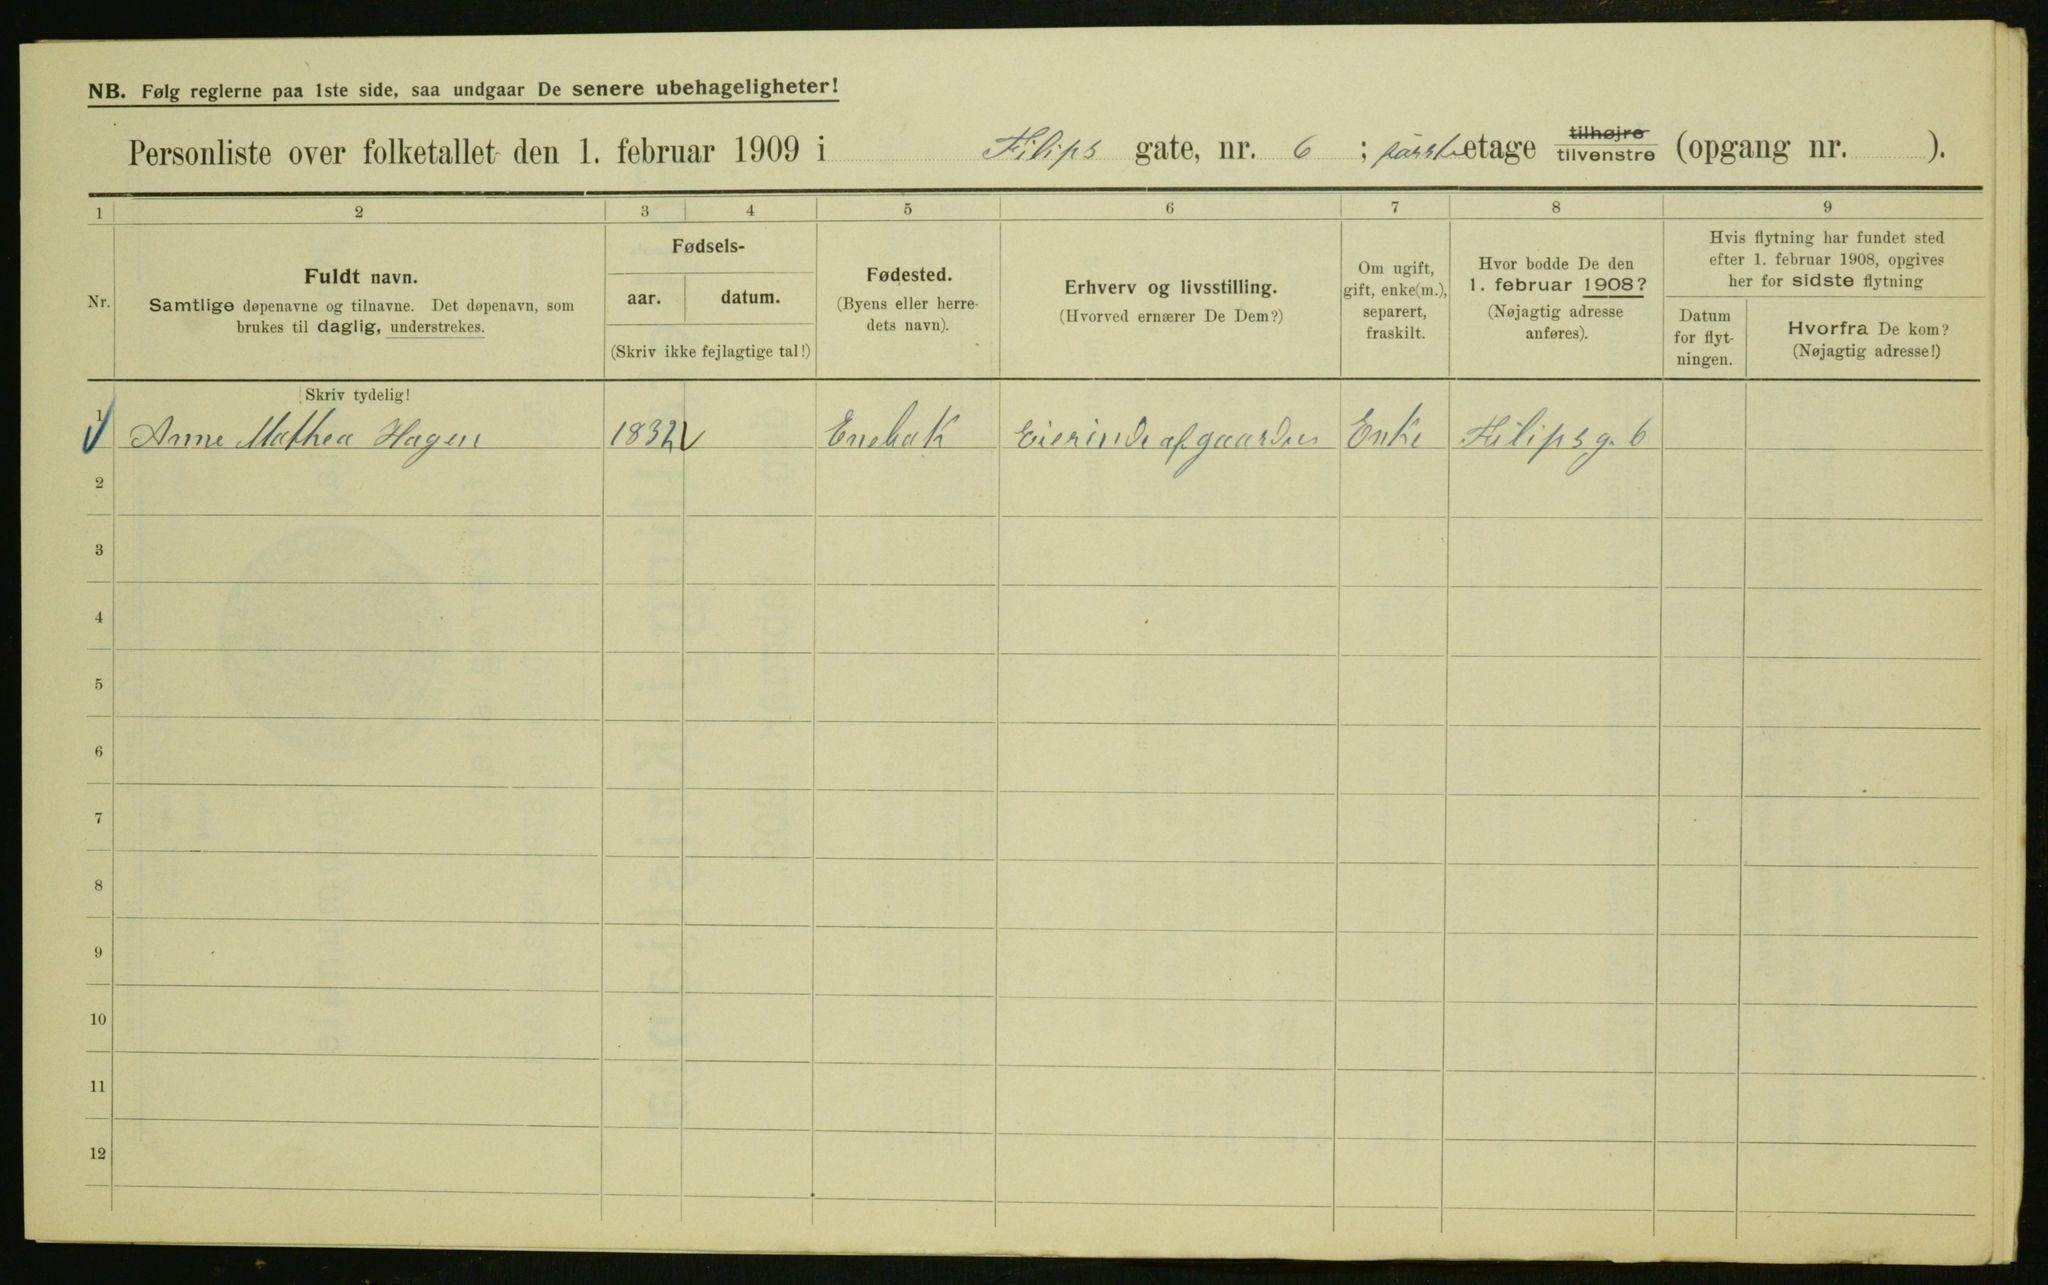 NB. Følg reglerne paa 1ste side, saa undgaar De senere ubehageligheter!
Personliste over folketallet den 1. februar 1909 i Filips gate, nr. 6 ; etage tilhøjre tilvenstre (opgang nr. ).
1 2 3 4 5 6 7 8 9
Nr.
Fuldt navn.
Samtlige døpenavne og tilnavne. Det døpenavn, som
brukes til daglig, understrekes.
Fødsels-
aar. datum.
(Skriv ikke fejlagtige tal!)
Fødested.
(Byens eller herre-
dets navn).
Erhverv og livsstilling.
(Hvorved ernærer De Dem?)
Om ugift,
gift, enke(m.),
separert,
fraskilt.
Hvor bodde De den
1. februar 1908?
(Nøjagtig adresse
anføres).
Hvis flytning har fundet sted
efter 1. februar 1908, opgives
her for sidste flytning
Datum
for flyt-
ningen.
Hvorfra De kom?
(Nøjagtig adresse!)
Skriv tydelig!
1 Anne Mathea Hagen 1832 Enebak Eierinde af gaarden Enke Filipsg. 6
2
3
4
5
6
7
8
9
10
11
12